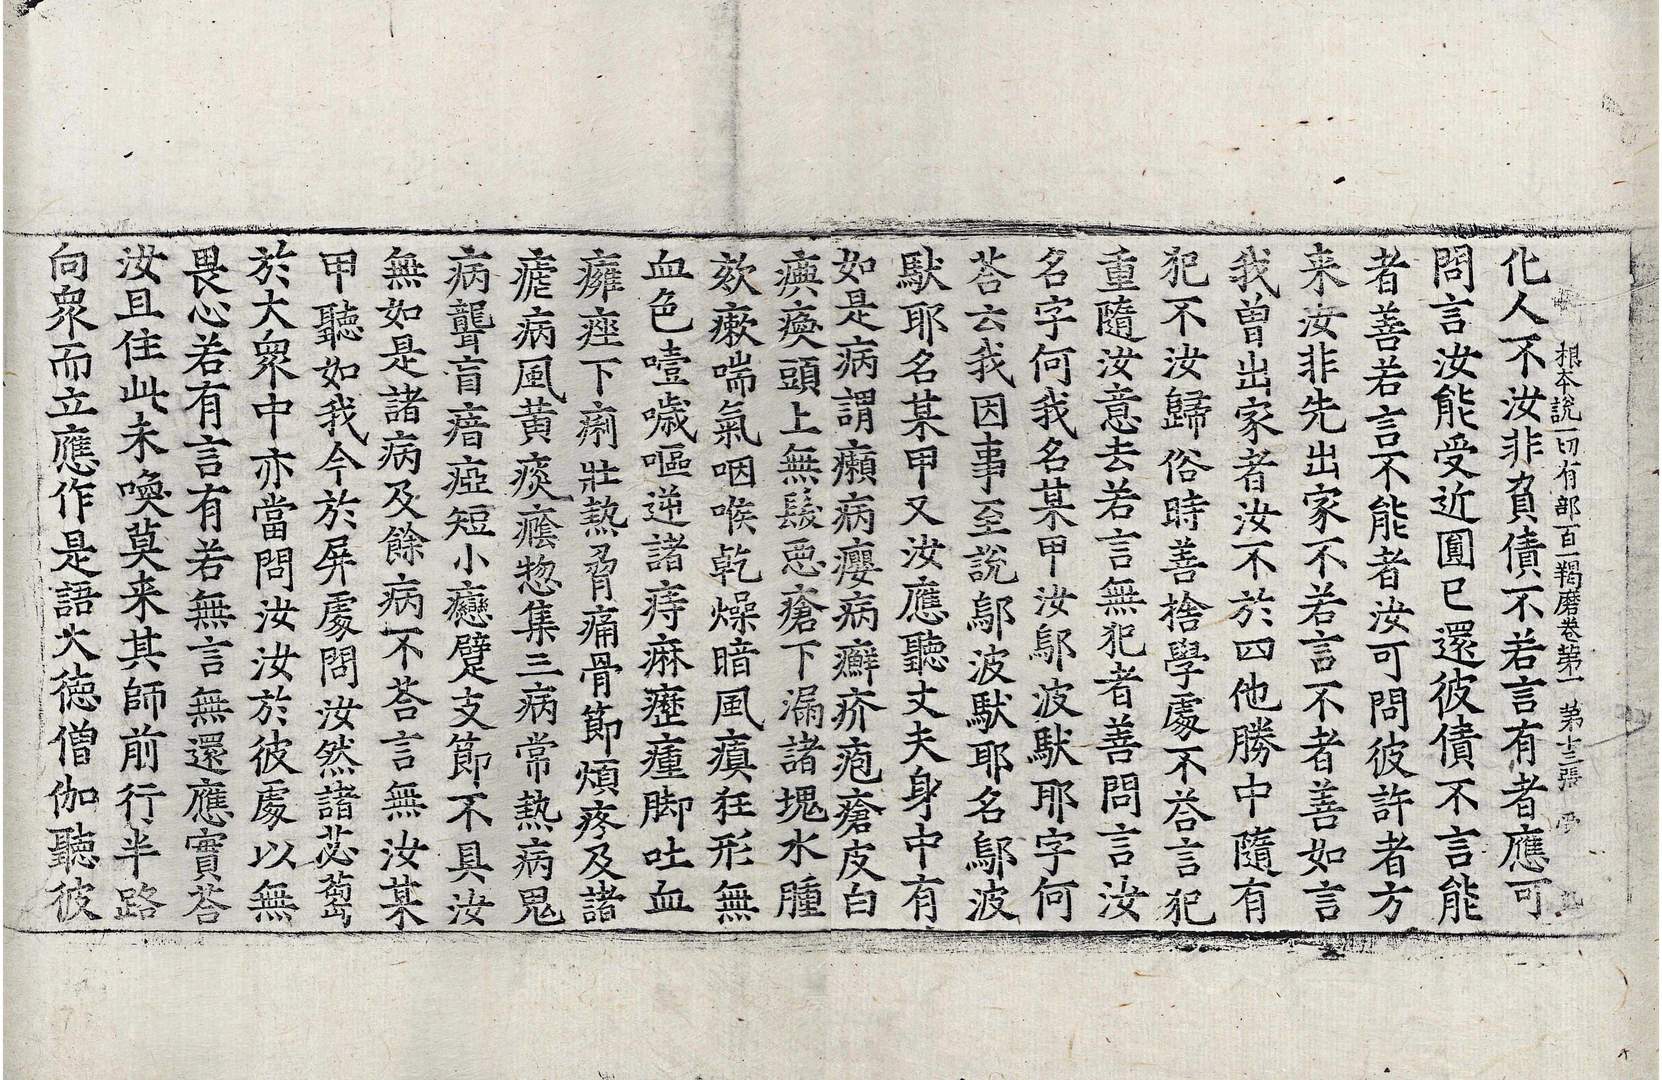 根本說一切有部百一羯磨卷第一 第十三張
化人不汝非負債不若言有者應可
問言汝能受近圓已還彼債不言能
者善若言不能者汝可問彼許者方
来汝非先出家不若言不者善如言
我曾出家者汝不於四他勝中隨有
犯不汝歸俗時善捨學處不荅言犯
重隨汝意去若言無犯者善問言汝
名字何我名某甲汝鄔波馱耶字何
荅云我因事至說鄔波馱耶名鄔波
馱耶名某甲又汝應聽丈夫身中有
如是病謂癩病癭病癬疥疱瘡皮白
痶瘓頭上無髮惡瘡下漏諸塊水腫
欬瘶喘氣咽喉乾燥暗風瘨狂形無
血色噎噦嘔逆諸痔痳瀝瘇脚吐血
癰痤下痢壯熱脅痛骨節煩疼及諸
瘧病風黃痰癊惣集三病常熱病鬼
病聾盲瘖瘂短小癵躄支節不具汝
無如是諸病及餘病不荅言無汝某
甲聽如我今於屏處問汝然諸苾蒭
於大衆中亦當問汝汝於彼處以無
畏心若有言有若無言無還應實荅
汝且住此未喚莫来其師前行半路
向衆而立應作是語大德僧伽聽彼